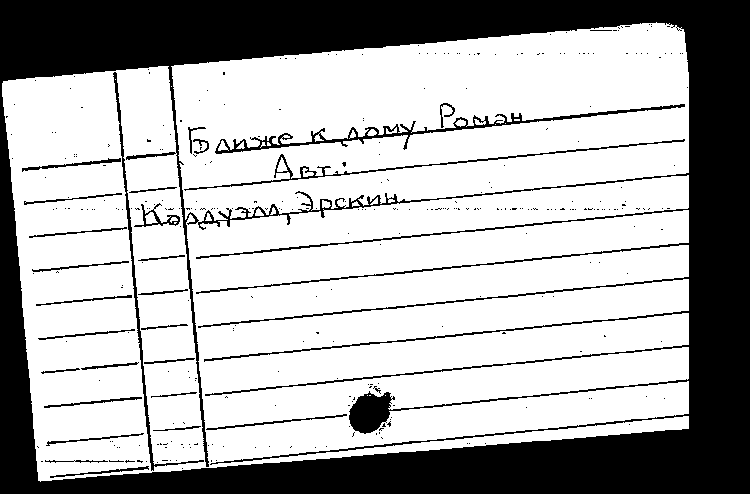 Ближе к дому. Роман
Авт.:
Колдуэлл, Эрскин.